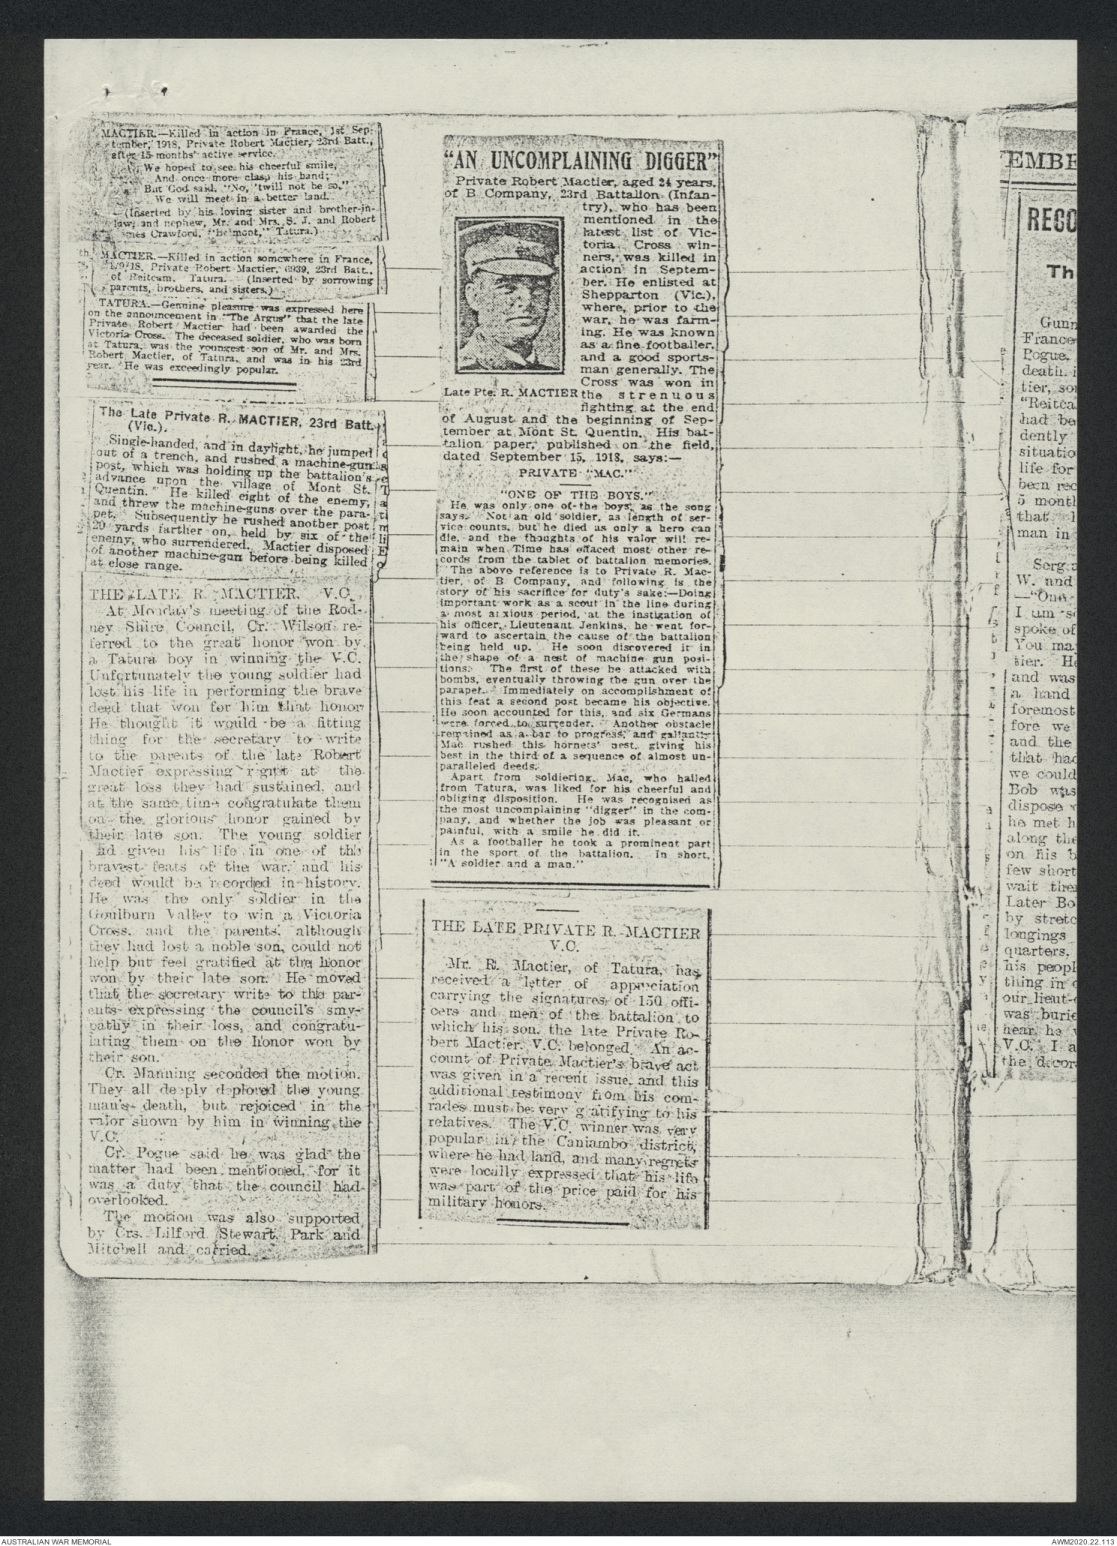 MACTIER.—Killed in action in France, 1st Sep-
tember, 1918, Private Robert Mactier, 23rd Batt.,
after 15 months' active service.
We hoped to see his cheerful smile,
And once more clasp his hand;
But God said, "No, 'twill not be so,"
We will meet in a better land.
—(Inserted by his loving sister and brother-in-
law, and nephew, Mr. and Mrs. S. J. and Robert
Crawford, "Belmont," Tatura.)
MACTIER.—Killed in action somewhere in France,
1/9/18, Private Robert Mactier, 6939, 23rd Batt.,
of Reitcam, Tatura. (Inserted by sorrowing
parents, brothers, and sisters.)
TATURA.—Genuine pleasure was expressed here
on the announcement in "The Argus" that the late
Private Robert Mactier had been awarded the
Victoria Cross. The deceased soldier, who was born
at Tatura, was the youngest son of Mr. and Mrs.
Robert Mactier, of Tatura, and was in his 23rd
year. He was exceedingly popular.
The Late Private R. MACTIER, 23rd Batt.
(Vic.).
Single-handed, and in daylight, he jumped
out of a trench, and rushed a machine-gun
post, which was holding up the battalion's
advance upon the village of Mont St.
Quentin. He killed eight of the enemy,
and threw the machine-guns over the para-
pet. Subsequently he rushed another post
20 yards farther on, held by six of the
enemy, who surrendered. Mactier disposed
of another machine-gun before being killed
at close range.
THE LATE R. MACTIER. V.C.
At Monday's meeting of the Rod-
ney Shire Council, Cr. Wilson re-
ferred to the great honor won by
a Tatura boy in winning the V.C.
Unfortunately the young soldier had
lost his life in performing the brave
deed that won for him that honor
He thought it would be a fitting
thing for the secretary to write
to the parents of the late Robert
Mactier expressing regret at the
great loss they had sustained, and
at the same time congratulate them
on the glorious honor gained by
their late son. The young soldier
had given his life in one of the
bravest feats of the war, and his
deed would be recorded in history.
He was the only soldier in the
Goulburn Valley to win a Victoria
Cross, and the parents, although
they had lost a noble son, could not
help but feel gratified at the honor
won by their late son. He moved
that the secretary write to the par-
ents expressing the council's smy-
pathy in their loss, and congratu-
lating them on the honor won by
their son.
Cr. Manning seconded the motion.
They all deeply deplored the young
man's death, but rejoiced in the
valor shown by him in winning the
V.C.
Cr. Pogue said he was glad the
matter had been mentioned, for it
was a duty that the council had
overlooked.
The motion was also supported
by Crs. Lilford, Stewart, Park and
Mitchell and carried.
"AN UNCOMPLAINING DIGGER"
Private Robert Mactier, aged 24 years,
of B Company, 23rd Battalion (Infan-
try), who has been
mentioned in the
latest list of Vic-
toria Cross win-
ners, was killed in
action in Septem-
ber. He enlisted at
Shepparton (Vic.),
where, prior to the
war, he was farm-
ing. He was known
as a fine footballer,
and a good sports-
man generally. The
Cross was won in
Late Pte. R. MACTIER
the strenuous
fighting at the end
of August and the beginning of Sep-
tember at Mont St. Quentin. His bat-
talion paper, published on the field,
dated September 15, 1918, says:—
PRIVATE "MAC."
"ONE OF THE BOYS."
He was only one of the boys, as the song
says. Not an old soldier, as length of ser-
vice counts, but he died as only a hero can
die, and the thoughts of his valor will re-
main when Time has effaced most other re-
cords from the tablet of battalion memories.
The above reference is to Private R. Mac-
tier, of B Company, and following is the
story of his sacrifice for duty's sake:—Doing
important work as a scout in the line during
a most anxious period, at the instigation of
his officer, Lieutenant Jenkins, he went for-
ward to ascertain the cause of the battalion
being held up. He soon discovered it in
the shape of a nest of machine gun posi-
tions. The first of these he attacked with
bombs, eventually throwing the gun over the
parapet. Immediately on accomplishment of
this feat a second post became his objective.
He soon accounted for this, and six Germans
were forced to surrender. Another obstacle
remained as a bar to progress, and gallantly
Mac rushed this hornets' nest, giving his
best in the third of a sequence of almost un-
paralleled deeds.
Apart from soldiering, Mac, who hailed
from Tatura, was liked for his cheerful and
obliging disposition. He was recognised as
the most uncomplaining "digger" in the com-
pany, and whether the job was pleasant or
painful, with a smile he did it.
As a footballer he took a prominent part
in the sport of the battalion. In short,
"A soldier and a man."
THE LATE PRIVATE R. MACTIER
V.C.
Mr. R. Mactier, of Tatura, has
received a letter of appreciation
carrying the signatures of 150 offi-
cers and men of the battalion to
which his son, the late Private Ro-
bert Mactier, V.C. belonged. An ac-
count of Private Mactier's brave act
was given in a recent issue, and this
additional testimony from his com-
rades must be very gratifying to his
relatives. The V.C. winner was very
popular in the Caniambo district,
where he had land, and many regrets
were locally expressed that his life
was part of the price paid for his
military honors.
EMBE
RECO
Th
Gunn
France
Pogue,
death
tier, so
"Reitca
had be
dently
situatio
life for
been rec
5 month
that
man in
Serg.
W. and
—"One
I am s
spoke of
You ma
tier. He
and was
a hand
foremost
fore we
and the
that had
we could
Bob was
dispose
he met h
along the
on his b
few short
wait the
Later Bo
by stretc
longings
quarters.
his peopl
thing in
our lieut
was burie
hear he
V.C. I a
the decor
AUSTRALIAN WAR MEMORIAL
AWM2020.22.113